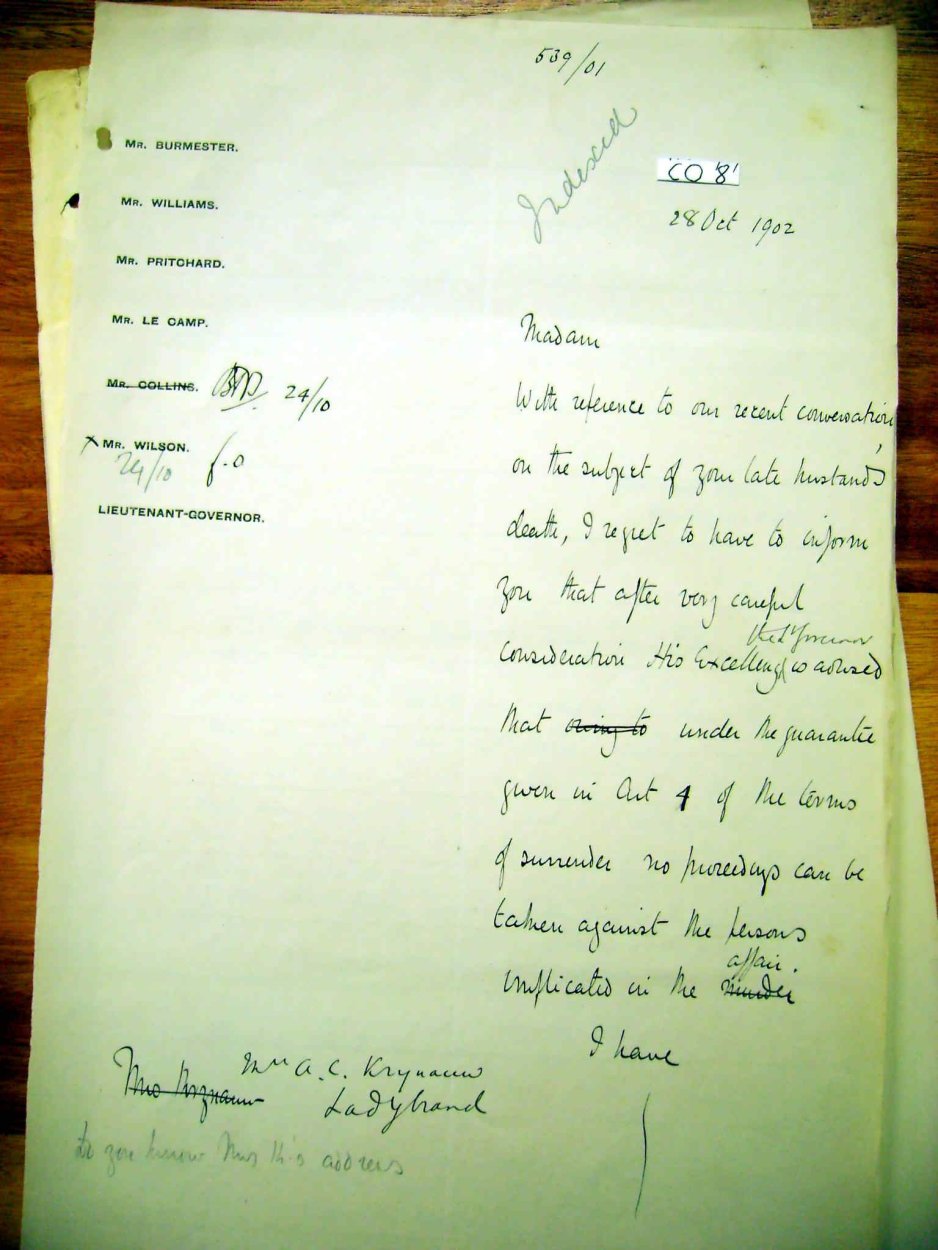 539/01
Indexed
CO '8'
28 Oct 1902
MR. BURMESTER.
MR. WILLIAMS.
MR. PRITCHARD.
MR. LE CAMP.
MR. COLLINS. 24/10
x MR. WILSON. f.o
24/10
LIEUTENANT-GOVERNOR.
Madam
With reference to our recent conversation,
on the subject of your late husband's
death, I regret to have to inform
you that after very careful
consideration His Excellency the Lt Governor is advised
that owing to under the guarantee
given in Art 4 of the terms
of surrender no proceedings can be
taken against the persons
implicated in the murder affair.
I have
Mrs Krynauw Mrs A. C. Krynauw
Ladybrand
do you know Mrs K's address